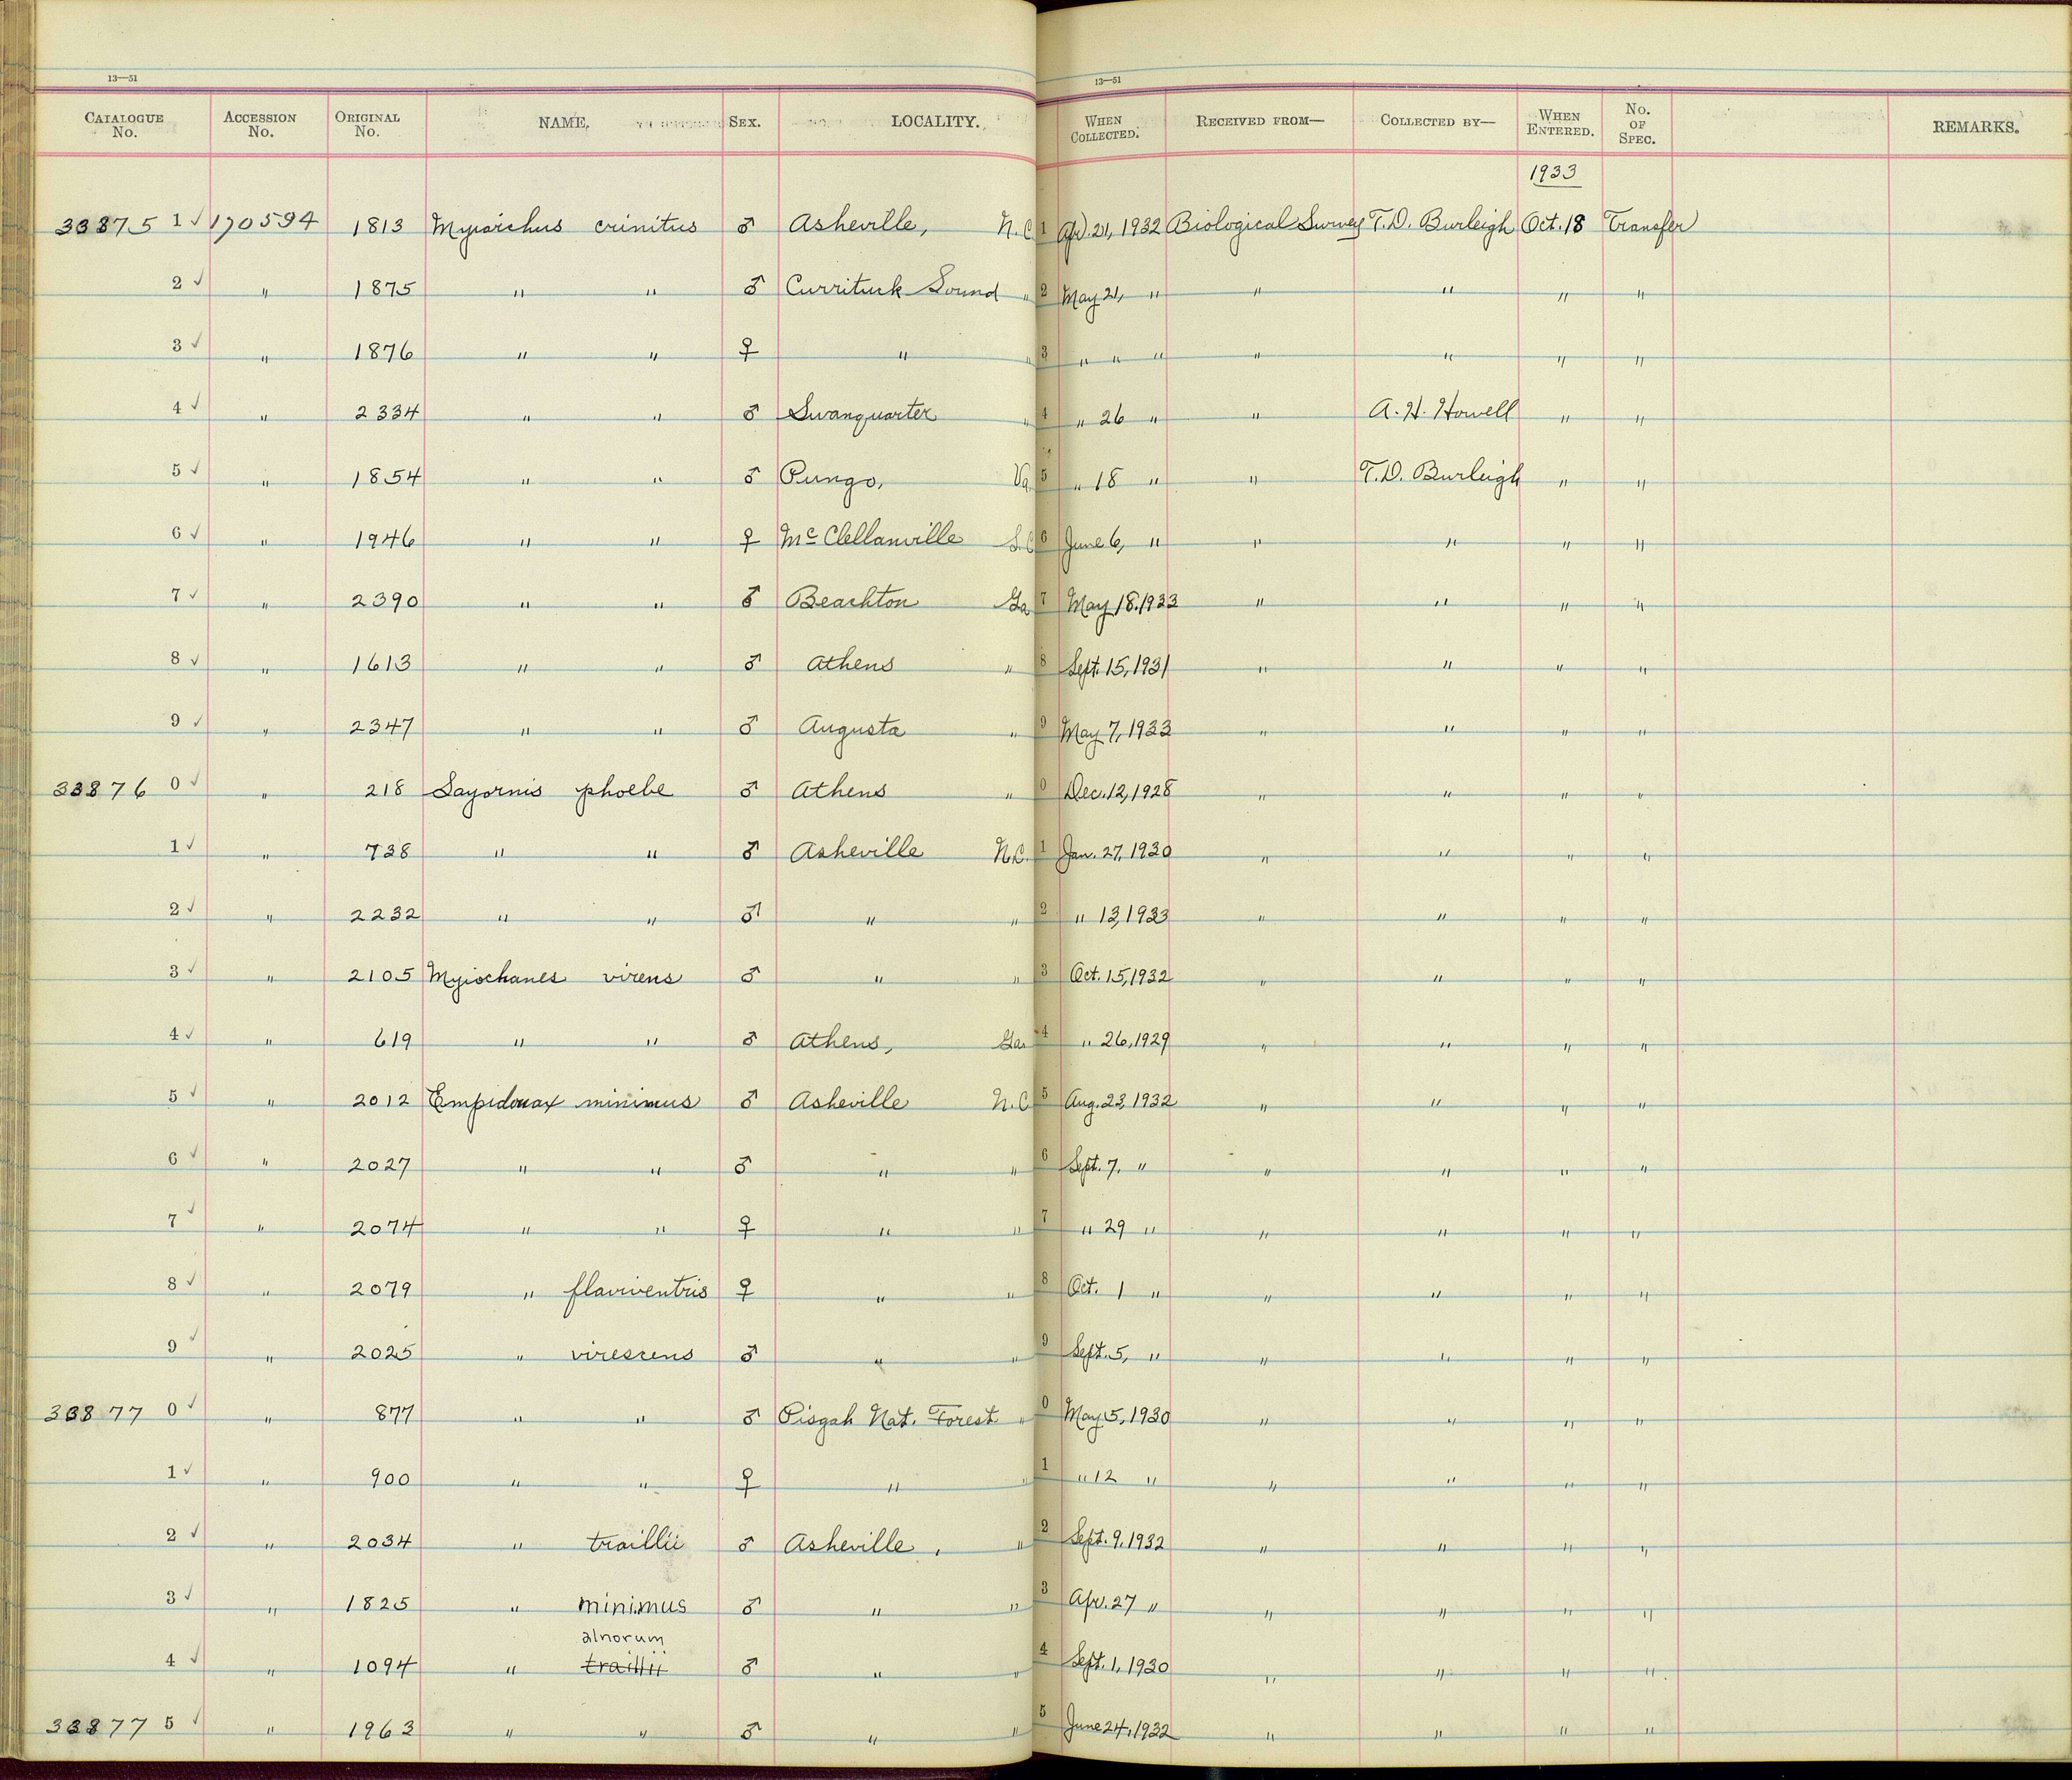 13—51 13—51
CATALOGUE No. ACCESSION No. ORIGINAL No. NAME. SEX. LOCALITY. WHEN COLLECTED. RECEIVED FROM— COLLECTED BY— WHEN ENTERED. No. OF SPEC. REMARKS.
1933
33875 1 ✓ 170594 1813 Myiarchus crinitus ♂ Asheville, N.C. 1 Apr. 21, 1932 Biological Survey T.D. Burleigh Oct. 18 Transfer
2 ✓ " 1875 " " ♂ Currituck Sound " 2 May 21, " " " " "
3 ✓ " 1876 " " ♀ " " 3 " " " " " " "
4 ✓ " 2334 " " ♂ Swanquarter " 4 " 26 " " A. H. Howell " "
5 ✓ " 1854 " " ♂ Pungo, Va. 5 " 18 " " T.D. Burleigh " "
6 ✓ " 1946 " " ♀ McClellanville S.C. 6 June 6, " " " " "
7 ✓ " 2390 " " ♂ Beachton Ga 7 May 18. 1933 " " " "
8 ✓ " 1613 " " ♂ Athens " 8 Sept. 15, 1931 " " " "
9 ✓ " 2347 " " ♂ Augusta " 9 May 7, 1933 " " " "
33876 0 ✓ " 218 Sayornis phoebe ♂ Athens " 0 Dec. 12, 1928 " " " "
1 ✓ " 738 " " ♂ Asheville N.C. 1 Jan. 27, 1930 " " " "
2 ✓ " 2232 " " ♂ " " 2 " 13, 1933 " " " "
3 ✓ " 2105 Myiochanes virens ♂ " " 3 Oct. 15, 1932 " " " "
4 ✓ " 619 " " ♂ Athens, Ga. 4 " 26, 1929 " " " "
5 ✓ " 2012 Empidonax minimus ♂ Asheville N.C. 5 Aug. 23, 1932 " " " "
6 ✓ " 2027 " " ♂ " " 6 Sept. 7, " " " " "
7 ✓ " 2074 " " ♀ " " 7 " 29 " " " " "
8 ✓ " 2079 " flaviventris ♀ " " 8 Oct. 1 " " " " "
9 ✓ " 2025 " virescens ♂ " " 9 Sept. 5, " " " " "
33877 0 ✓ " 877 " " ♂ Pisgah Nat. Forest " 0 May 5, 1930 " " " "
1 ✓ " 900 " " ♀ " " 1 " 12 " " " " "
2 ✓ " 2034 " traillii ♂ Asheville, " 2 Sept. 9, 1932 " " " "
3 ✓ " 1825 " minimus ♂ " " 3 Apr. 27 " " " " "
alnorum
4 ✓ " 1094 " traillii ♂ " " 4 Sept. 1, 1930 " " " "
33877 5 ✓ " 1963 " " ♂ " " 5 June 24, 1932 " " " "